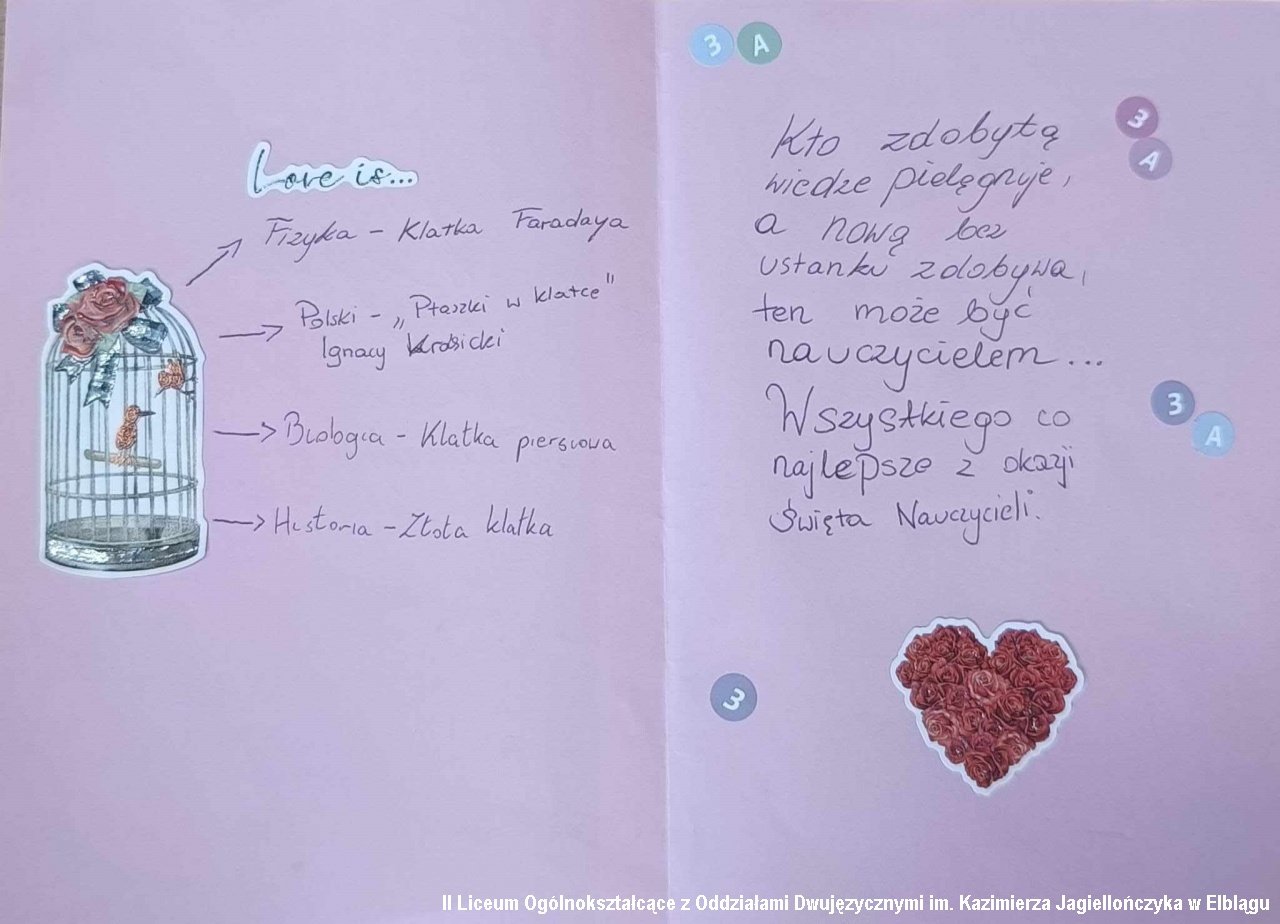 Love is...
Fizyka - Klatka Faradaya
Polski - „Ptaszki w klatce"
Ignacy Krasicki
Biologia - Klatka piersiowa
Historia - Złota klatka
3 A
Kto zdobytą
wiedze pielęgnuje,
a nową bez
ustanku zdobywa,
ten może być
nauczycielem...
Wszystkiego co
najlepsze z okazji
Święta Nauczycieli.
3
A
3
A
3
II Liceum Ogólnokształcące z Oddziałami Dwujęzycznymi im. Kazimierza Jagiellończyka w Elblągu